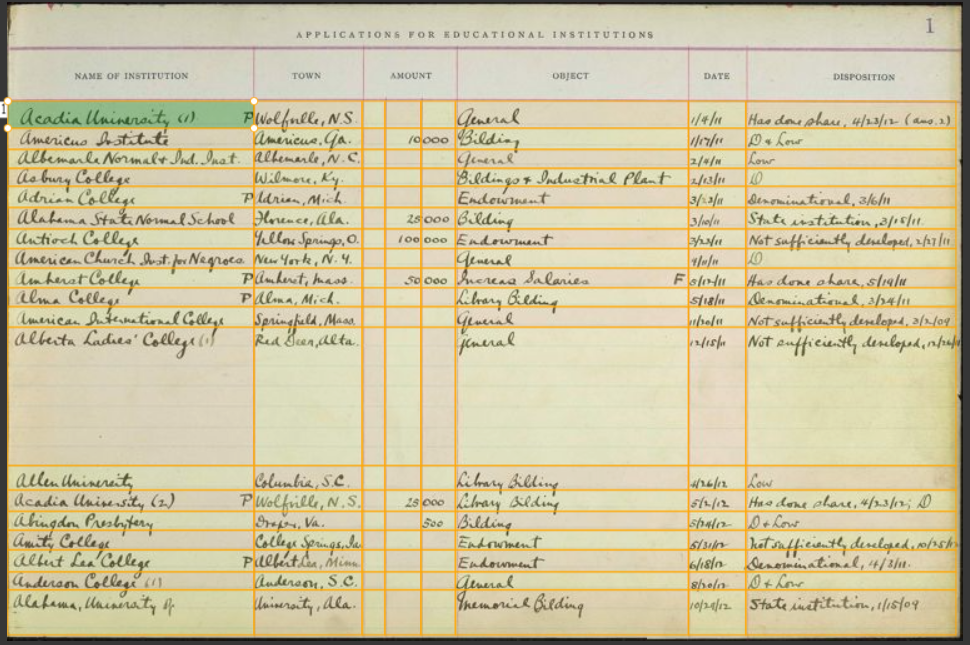 1
APPLICATIONS FOR EDUCATIONAL INSTITUTIONS
NAME OF INSTITUTION TOWN AMOUNT OBJECT DATE DISPOSITION
1
Acadia University (1) P Wolfville, N.S. General 1/4/11 Has done share, 4/23/12 (ans. 2)
Americus Institute Americus, Ga. 10 000 Bilding 1/17/11 D & Low
Albemarle Normal & Ind. Inst. Albemarle, N.C. General 2/4/11 Low
Asbury College Wilmore, Ky. Bildings & Industrial Plant 2/13/11 D
Adrian College P Adrian, Mich. Endowment 3/23/11 Denominational, 3/6/11
Alabama State Normal School Florence, Ala. 25 000 Bilding 3/10/11 State institution, 3/15/11.
Antioch College Yellow Springs, O. 100 000 Endowment 3/23/11 Not sufficiently developed, 2/27/11
American Church Inst. for Negroes. New York, N.Y. General 9/11/11 D
Amherst College P Amherst, Mass. 50 000 Increas Salaries F 5/12/11 Has done share, 5/19/11
Alma College P Alma, Mich. Library Bilding 5/18/11 Denominational, 3/24/11
American International College Springfield, Mass. General 11/20/11 Not sufficiently developed, 3/2/09
Alberta Ladies' College (1) Red Deer, Alta. General 12/15/11 Not sufficiently developed,
Allen University Columbia, S.C. Library Bilding 4/26/12 Low
Acadia University (2) P Wolfville, N.S. 25 000 Library Bilding 5/2/12 Has done share, 4/23/12; D
Abingdon Presbytery Draper, Va. 500 Bilding 5/24/12 D & Low
Amity College College Springs, Ia Endowment 5/31/12 Not sufficiently developed,
Albert Lea College P Albert Lea, Minn Endowment 6/18/12 Denominational, 4/3/11.
Anderson College (1) Anderson, S.C. General 8/20/12 D & Low
Alabama, University of University, Ala. Memorial Bilding 10/29/12 State institution, 1/15/09